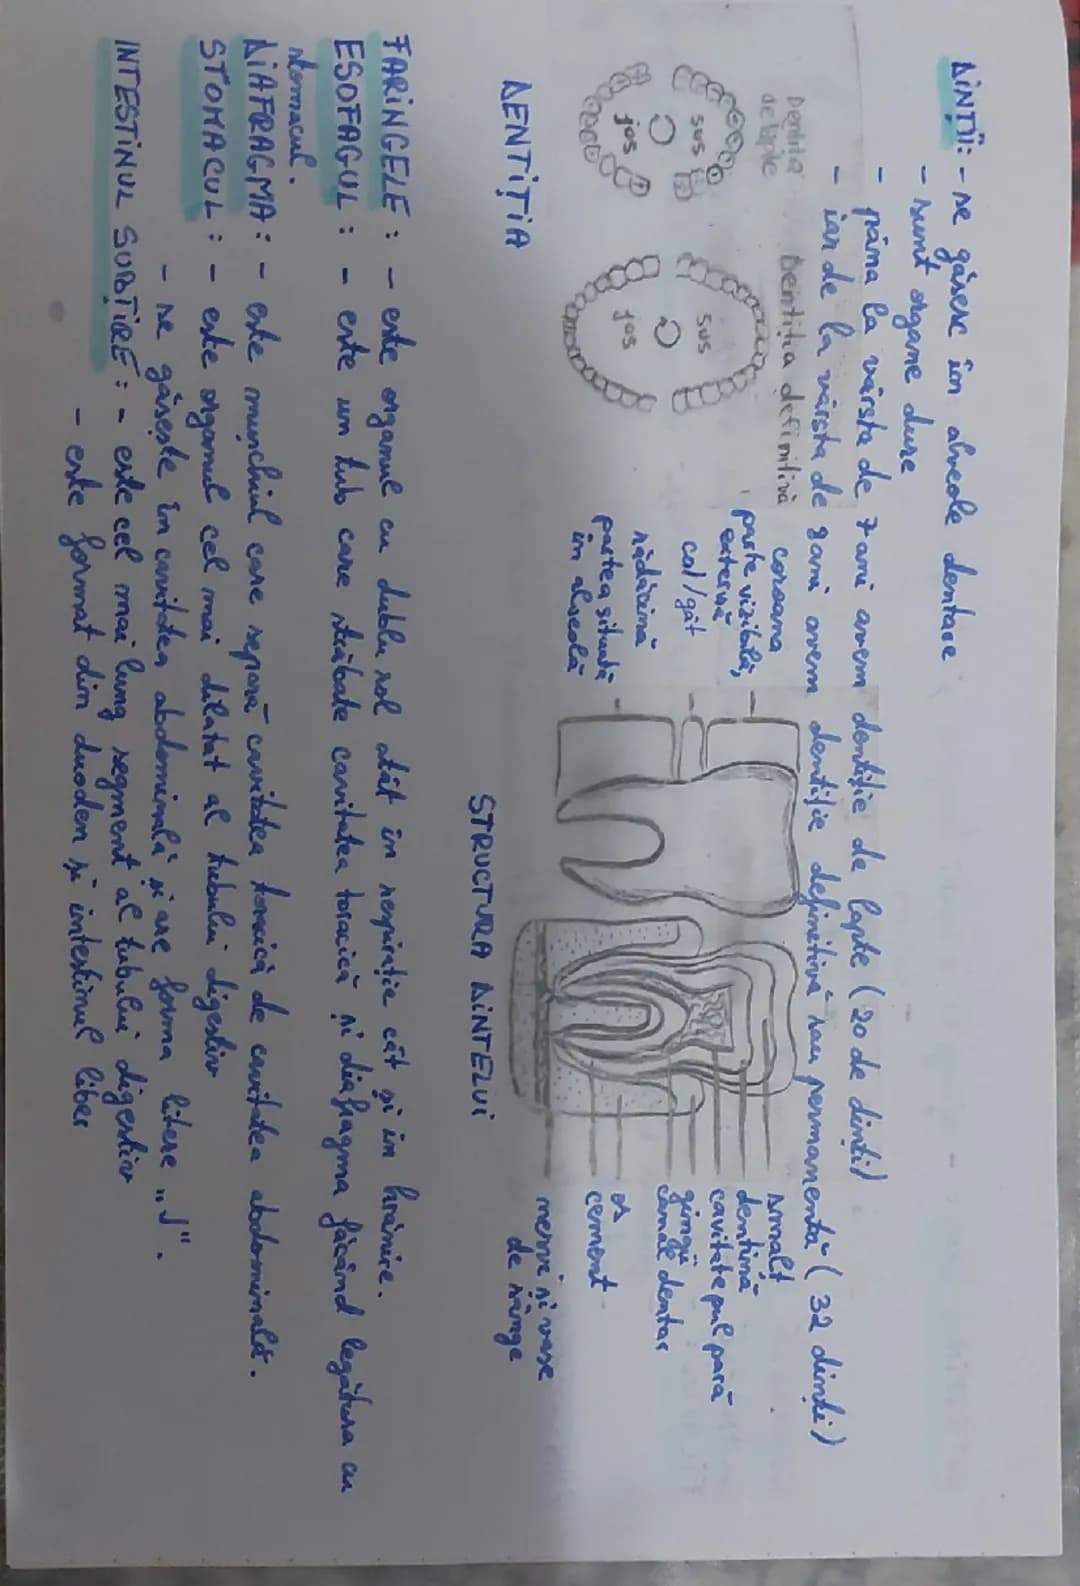 DINȚII: - se găsesc în alveole dentare
- sunt organe dure
- până la vârsta de 7 ani avem dentiție de lapte (20 de dinți)
- iar de la vârsta de 8 ani avem dentiție definitivă sau permanentă (32 dinți)
Dentiția de lapte
Dentiția definitivă
sus
jos
sus
jos
DENTIȚIA
coroana
parte vizibilă,
externă
col/gât
rădăcină
partea situată
în alveolă
smalț
dentină
cavitate pulpară
gingii
canal dentar
os
cement
nervi și vase
de sânge
STRUCTURA DINTELUI
FARINGELE: - este organul cu dublu rol atât în respirație cât și în hrănire.
ESOFAGUL: - este un tub care străbate cavitatea toracică și diafragma făcând legătura cu
stomacul.
DIAFRAGMA: - este mușchiul care separă cavitatea toracică de cavitatea abdominală.
STOMACUL: - este organul cel mai dilatat al tubului digestiv
- se găsește în cavitatea abdominală și are forma litere "J".
INTESTINUL SUBȚIRE: - este cel mai lung segment al tubului digestiv
- este format din duoden și intestinul liber